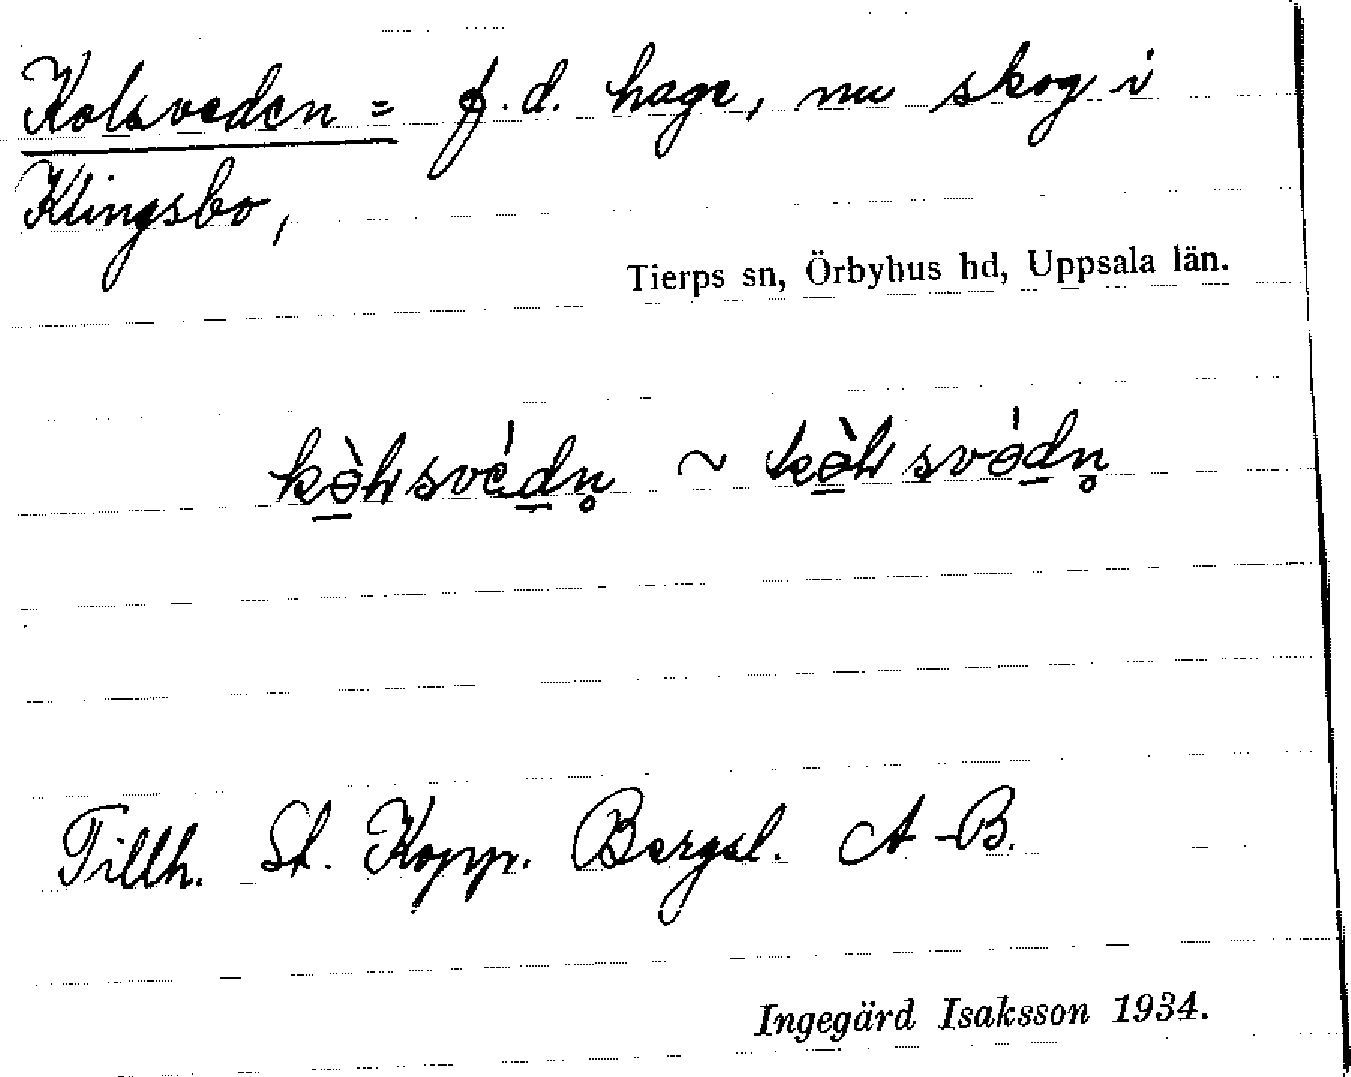 Kolsveden = f.d. hage, nu skog i
Klingsbo,
Tierps sn, Örbyhus hd, Uppsala län.
~
Tillh. St. Kopp. Bergsl. A-B.
Ingegärd Isaksson 1934.